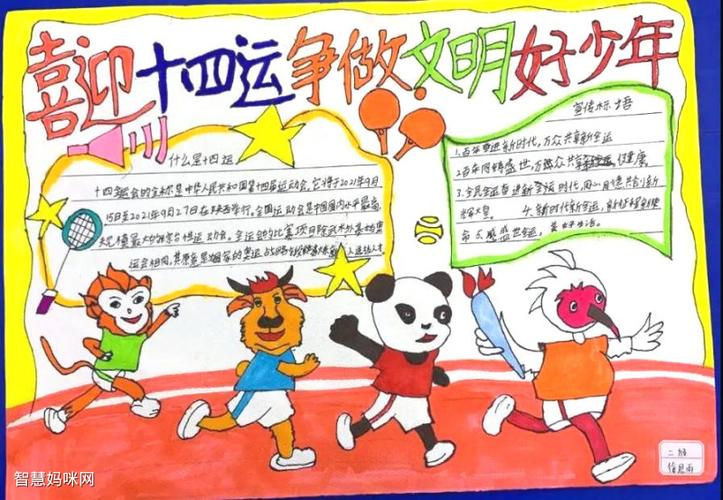 喜迎十四运争做文明好少年
什么是十四运
十四运会的全称是中华人民共和国第十四届运动会,它将于2021年9月
15日至2021年9月27日在陕西举行。全国运动会是中国国内水平最高、
规模最大的综合性运动会。全运会的比赛项目除武术外基本与奥
运会相同,其原意是为国家的奥运战略
人选拔人才
宣传标语
1.百年奋进新时代,万众共享新全运
2.百年同铸盛世,万民众共享全运健康
3.全民全运奋进新时代,同心同德共创新
辉煌。 4.新时代新全运,新征程新使
命 5.盛世全运,美好生活。
二班
智慧妈咪网